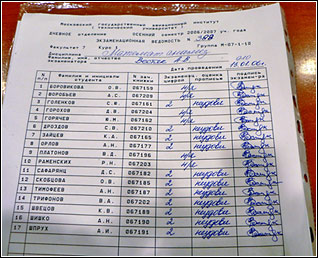 Московский государственный авиационный институт
ДНЕВНОЕ отделение ОСЕННИЙ семестр 2006/2007 уч. года
ЭКЗАМЕНАЦИОННАЯ ВЕДОМОСТЬ №
Факультет 7 Курс Группа М-07-1-10
Дисциплина
Фамилия, имя, отчество
экзаменатора Дата проведения
N п/п Фамилия и инициалы студента N зач. книжки Экзаменац. оценка цифрой прописью подпись экзамен.
1 БОРОВИКОВА О.В. 067159 н/я
2 ВОРОБЬЕВ А.С. 067209 н/я
3 ГОЛЕНКОВ С.В. 067161 2 неудовл
4 ГОРОВ Д.В. 067162 н/я
5 ГОРЯЧЕВ Ю.М. 067162 н/я
6 ДРОЗДОВ С.В. 067210 2 неудовл
7 ЗАЙЦЕВ К.А. 067165 2 неудовл
8 ОРЛОВ А.Н. 067177 2 неудовл
9 ПЛАТОНОВ В.Д. 067196 н/я
10 РАМЕНСКИХ Р.Н. 067203 н/я
11 САФАРЯНЦ Д.С. 067182 2 неудовл
12 СКОБЦОВА О.В. 067185 2 неудовл
13 ТИМОФЕЕВ А.Н. 067187 2 неудовл
14 ТРИФОНОВА В.А. 067202 2 неудовл
15 ШВЕЦОВ К.В. 067189 2 неудовл
16 ШИШКО А.Н. 067190 2 неудовл
17 ШПРУХ А.И. 067191 2 неудовл